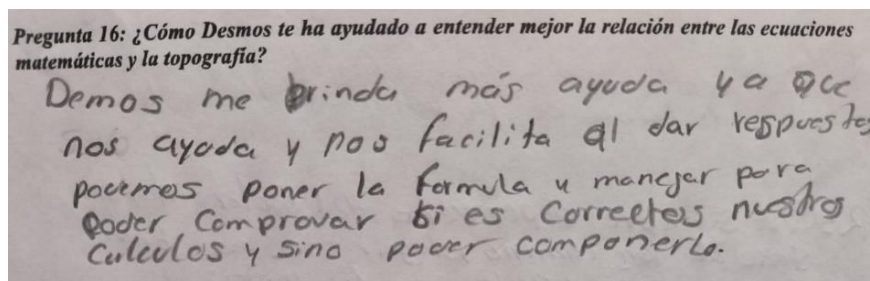 Pregunta 16: ¿Cómo Desmos te ha ayudado a entender mejor la relación entre las ecuaciones
matemáticas y la topografía?
Demos me brinda más ayuda ya que
nos ayuda y nos facilita al dar respuestas
podemos poner la formula y manejar para
poder comprovar si es correctos nuestros
calculos y sino poder componerlo.